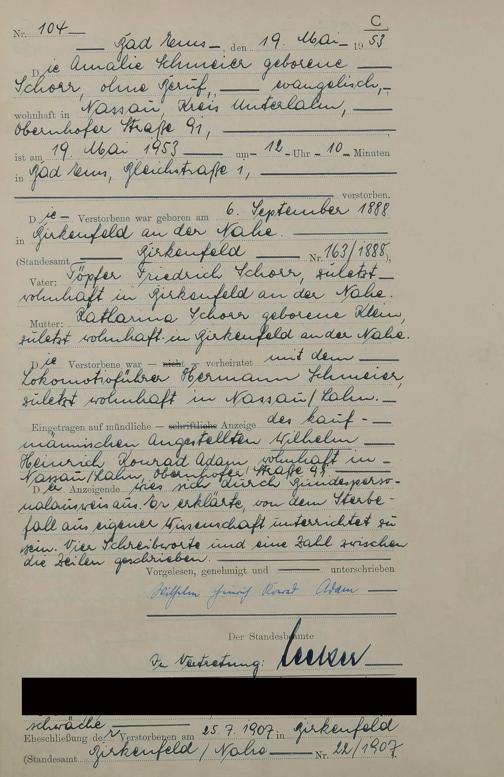 C
Nr. 104
Bad Ems, den 19. Mai 1953
Die Amalie Schmeier geborene
Schorr, ohne Beruf, evangelisch,
wohnhaft in Nassau, Kreis Unterlahn,
Obernhofer Straße 91,
ist am 19. Mai 1953 um 12 Uhr 10 Minuten
in Bad Ems, Gleichstraße 1,
verstorben.
Die Verstorbene war geboren am 6. September 1888
in Birkenfeld an der Nahe.
(Standesamt Birkenfeld Nr. 163/1888),
Vater: Töpfer Friedrich Schorr, zuletzt
wohnhaft in Birkenfeld an der Nahe.
Mutter: Katharina Schorr geborene Klein,
zuletzt wohnhaft in Birkenfeld an der Nahe.
Die Verstorbene war — nicht — verheiratet mit dem
Lokomotivführer Hermann Schmeier,
zuletzt wohnhaft in Nassau/Lahn.
Eingetragen auf mündliche — schriftliche Anzeige des kauf-
männischen Angestellten Wilhelm
Heinrich Konrad Adam, wohnhaft in
Nassau/Lahn, Obernhofer Straße 91.
Der Anzeigende wies sich durch Bundesperso-
nalausweis aus. Er erklärte, von dem Sterbe-
fall aus eigener Wissenschaft unterrichtet zu
sein. Vier Schreibworte und eine Zahl zwischen
die Zeilen geschrieben.
Vorgelesen, genehmigt und unterschrieben
Wilhelm Heinrich Konrad Adam
Der Standesbeamte
In Vertretung:
schwäche
Eheschließung der Verstorbenen am 25.7.1907 in Birkenfeld
(Standesamt Birkenfeld/Nahe Nr. 22/1907.